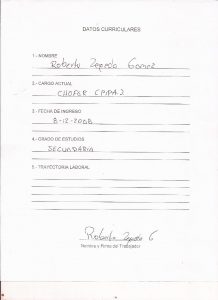 DATOS CURRICULARES
1.- NOMBRE
Roberto Zepeda Gomez
2.- CARGO ACTUAL
CHOFER
3.- FECHA DE INGRESO
8-12-2008
4.- GRADO DE ESTUDIOS
SECUNDARIA
5.- TRAYECTORIA LABORAL
Roberto Zepeda G
Nombre y Firma del Trabajador